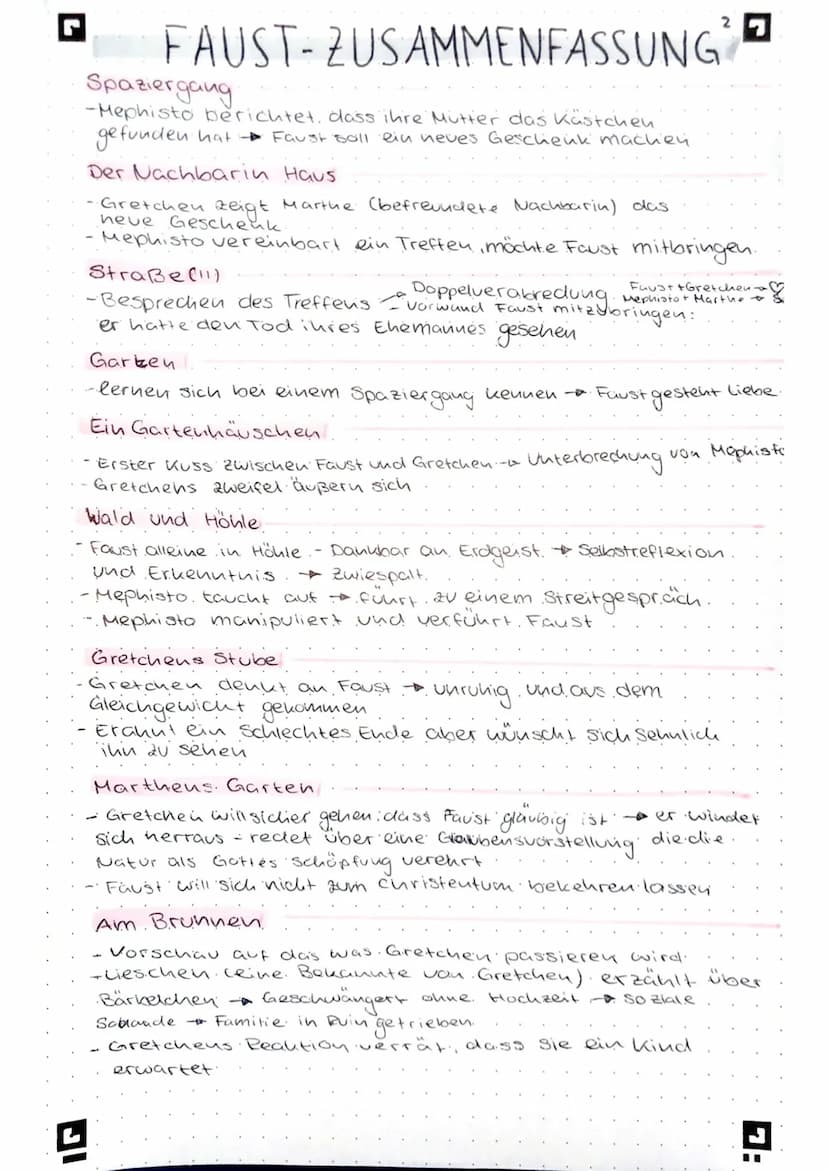 FAUST-ZUSAMMENFASSUNG²
Spaziergang
-Mephisto berichtet, dass ihre Mutter das Kästchen
gefunden hat → Faust soll ein neues Geschenk machen
Der Nachbarin Haus
- Gretchen zeigt Marthe (befreundete Nachbarin) das
neue Geschenk
- Mephisto vereinbart ein Treffen, möchte Faust mitbringen
Straße (II)
-Besprechen des Treffens → Doppelverabredung Faust+Gretchen → ♡
Mephisto+Marthe →
- Vorwand Faust mitzubringen:
er hatte den Tod ihres Ehemannes gesehen
Garten
-lernen sich bei einem Spaziergang kennen → Faust gesteht Liebe
Ein Gartenhäuschen
- Erster Kuss zwischen Faust und Gretchen → Unterbrechung von Mephisto
- Gretchens zweifel äußern sich
Wald und Höhle
- Faust alleine in Höhle - Dankbar an Erdgeist → Selbstreflexion
und Erkenntnis → Zwiespalt
- Mephisto taucht auf → führt zu einem Streitgespräch
- Mephisto manipuliert und verführt Faust
Gretchens Stube
- Gretchen denkt an Faust → unruhig und aus dem
Gleichgewicht gekommen
- Erahnt ein schlechtes Ende aber wünscht sich sehnlich
ihn zu sehen
Marthens Garten
- Gretchen will sicher gehen, dass Faust gläubig ist → er windet
sich herraus - redet über eine Glaubensvorstellung die die
Natur als Gottes Schöpfung verehrt
- Faust will sich nicht zum Christentum bekehren lassen
Am Brunnen
- Vorschau auf das was Gretchen passieren wird
- Lieschen (eine Bekannte von Gretchen) erzählt über
Bärbelchen → Geschwängert ohne Hochzeit → soziale
Schande → Familie in Ruin getrieben
- Gretchens Reaktion verrät, dass sie ein Kind
erwartet